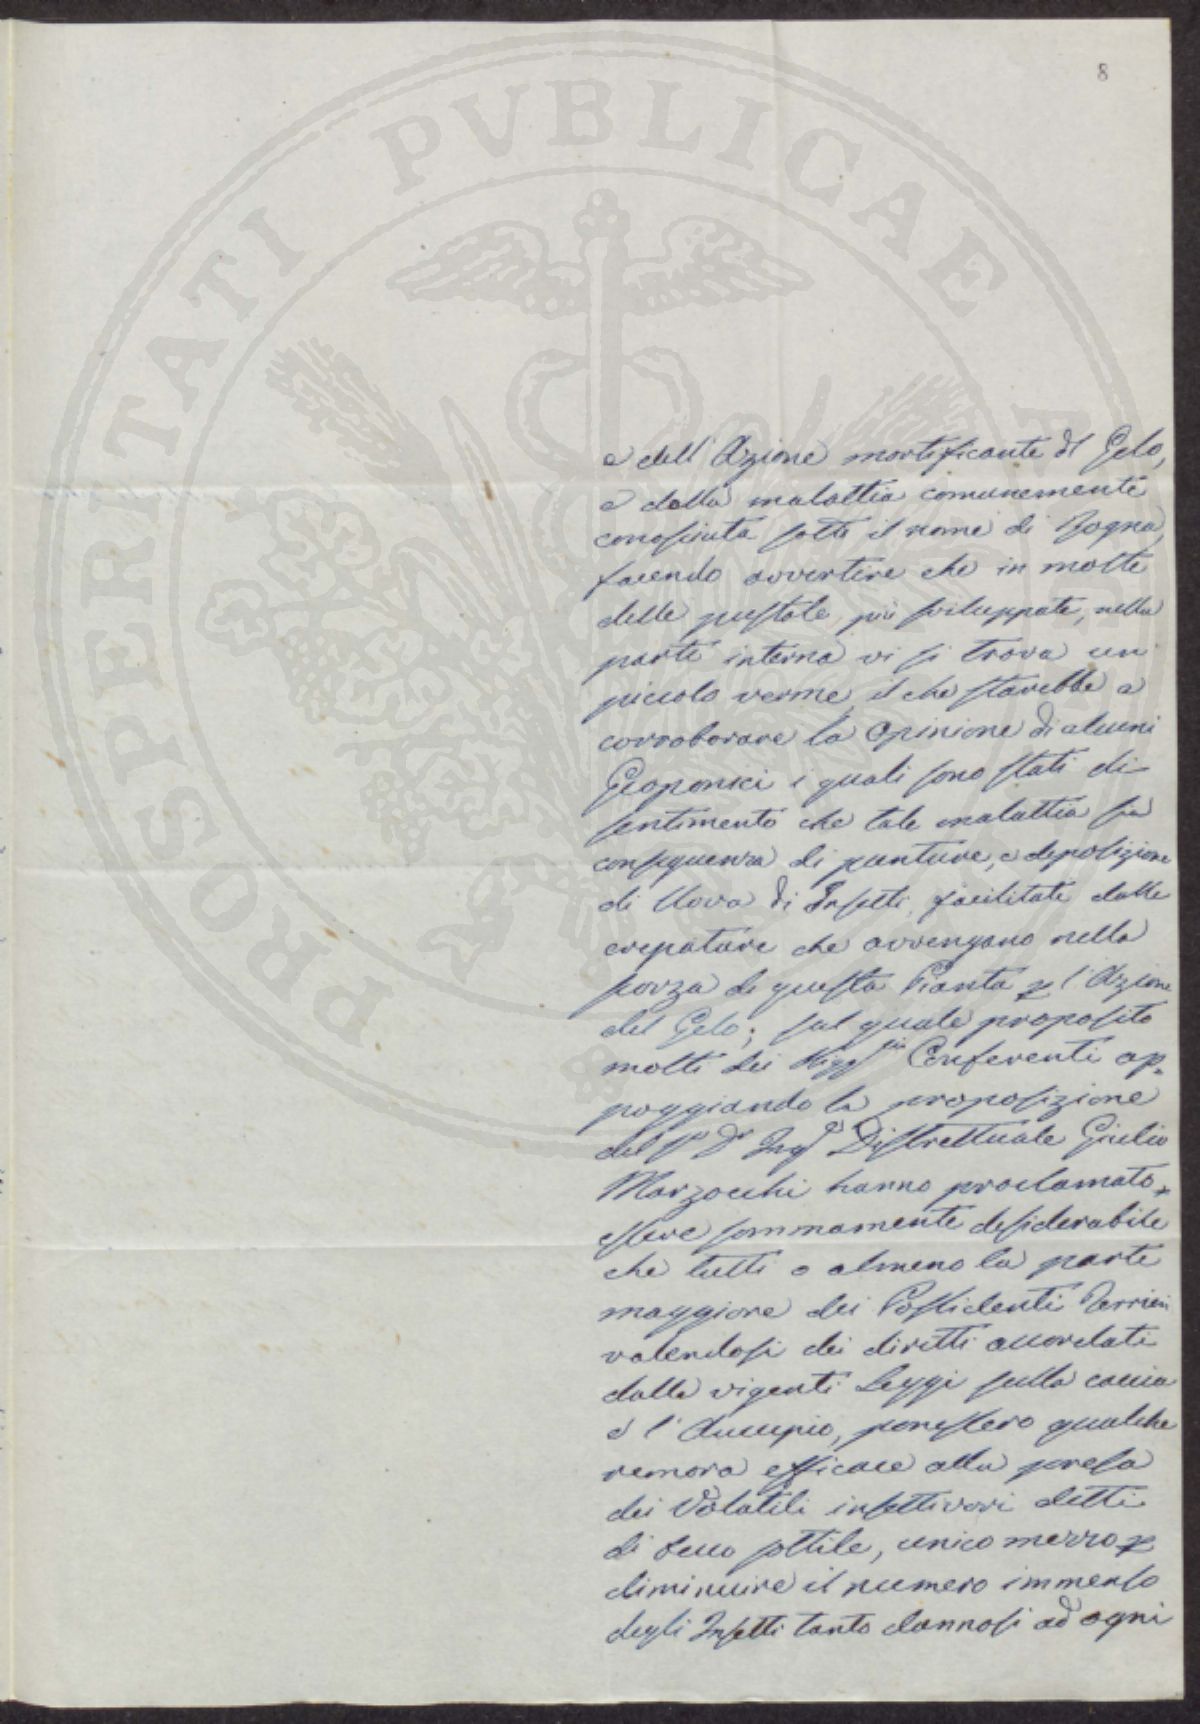 8
PROSPERITATI PUBLICAE
e dell'Azione mortificante del Gelo,
e della malattia comunemente
conosciuta sotto il nome di Rogna,
facendo avvertire che in molte
delle pustole più sviluppate, nella
parte interna vi si trova un
piccolo verme, il che starebbe a
corroborare la Opinione di alcuni
Geoponici i quali sono stati di
sentimento che tale malattia sia
conseguenza di punture, e deposizione
di Uova di Insetti, facilitati dalle
crepature che avvengano nella
scorza di questa Pianta p l'Azione
del Gelo; sul quale proposito
molti dei Sigg.ri Conferenti ap=
poggiando la proposizione
del Sr Dr Ingre Distrettuale Giulio
Marzocchi hanno proclamato
essere sommamente desiderabile
che tutti o almeno la parte
maggiore dei Possidenti Terrieri
valendosi dei diritti accordati
dalle vigenti Leggi sulla caccia
e l'Aucupio, ponessero qualche
remora efficace alla presa
dei Volatili insettivori detti
di becco sottile, unico mezzo p
diminuire il numero immenso
degli Insetti tanto dannosi ad ogni